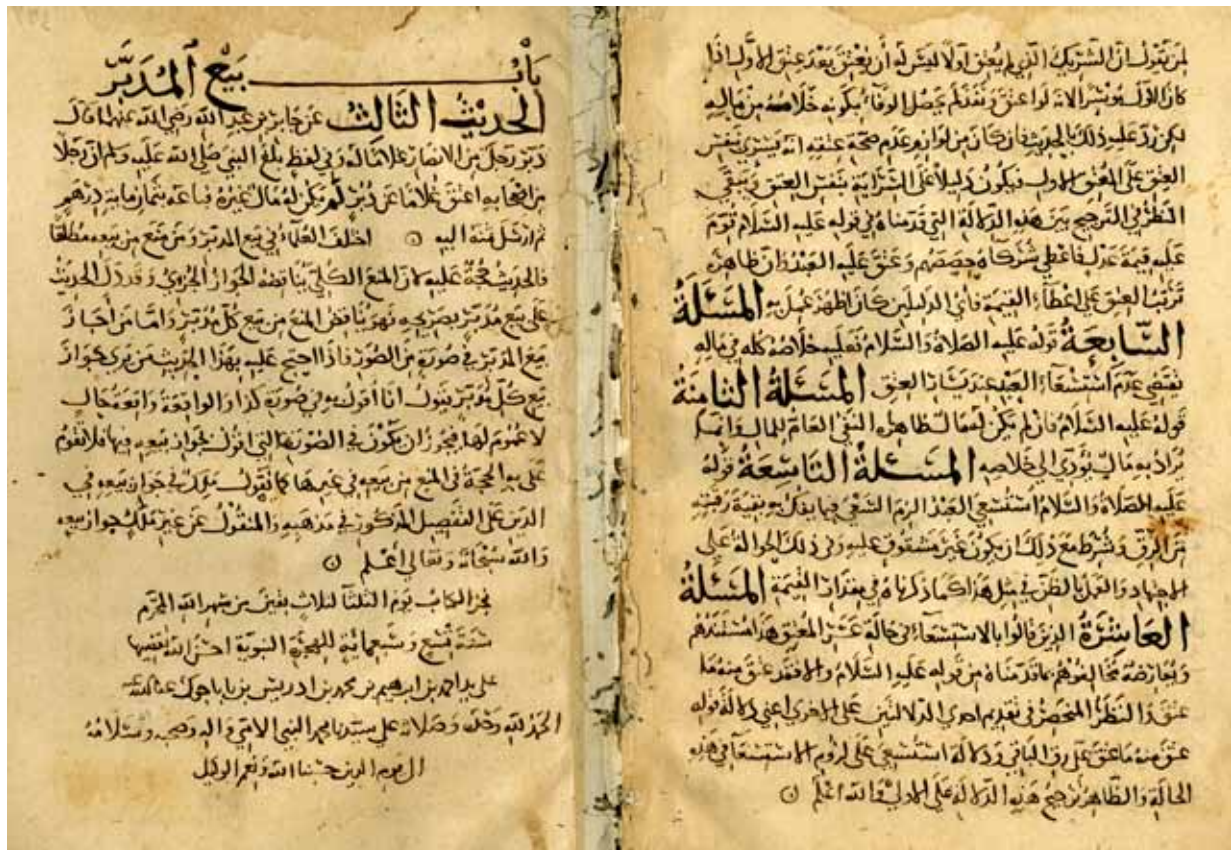 لمن يقول ان الشريك الذي لم يعتق اولا ليس له أن يعتق بعد عتق الاول اذا
كان الاول موسرا لانه لو اعتق ونفذ لم يحصل الوفاء بكونه خلاصه من ماله
لكن يرد عليه ذلك بالحديث فان كان من لوازم عدم صحة عتقه انه يسري بنفس
العتق على المعتق الاول فيكون دليلا على السراية بنفس العتق ويبقى
النظر في الترجيح بين هذه الدلالة التي قدمناها في قوله عليه السلام قوم
عليه قيمة عدل فاعطي شركاه حصصهم وعتق عليه العبد فان ظاهره
ترتب العتق على اعطاء القيمة فأي الدليلين كان اظهر عمل به المسئلة
السابعة قوله عليه الصلاة والسلام فعليه خلاصه كله في ماله
يقتضي عدم استسعاء العبد عند يسار المعتق المسئلة الثامنة
قوله عليه السلام فان لم يكن له مال ظاهره النفي العام للمال وانما
يراد به مال يؤدي الى خلاصه المسئلة التاسعة قوله
عليه الصلاة والسلام استسعي العبد الزم السعي فيما يفك به بقية رقبته
من الرق وشرط مع ذلك ان يكون غير مشقوق عليه وفي ذلك احوالة على
الاجتهاد والعمل بالظن في مثل هذا كما ذكرناه في مقدار القيمة المسئلة
العاشرة الذين قالوا بالاستسعاء في حالة عسر المعتق هذا مستندهم
ويعارضه مخالفوهم بما قدمناه من قوله عليه السلام والا فقد عتق منه ما
عتق والنظر المنحصر في تقديم احدى الدلالتين على الاخرى اعني دلالة قوله
عتق منه ما عتق على رق الباقي ودلالة استسعي على لزوم الاستسعاء في هذه
الحالة والظاهر ترجيح هذه الدلالة على الاولى والله اعلم
باب بيع المدبر
الحديث الثالث عن جابر بن عبد الله رضي الله عنهما قال
دبر رجل من الانصار غلاما له وفي لفظ بلغ النبي صلى الله عليه وسلم ان رجلا
من اصحابه اعتق غلاما عن دبر لم يكن له مال غيره فباعه بثمان ماية درهم
ثم ارسل ثمنه اليه اختلف العلماء في بيع المدبر ومن منع من بيعه مطلقا
فالحديث حجة عليه لان المنع الكلي يناقضه الجواز الجزوي وقد دل الحديث
على بيع مدبر بصريحه فهو يناقض المنع من بيع كل مدبر واما من أجاز
بيع المدبر في صورة من الصور فاذا احتج عليه بهذا الحديث من يرى جواز
بيع كل مدبر يقول انا اقول به في صورة كذا والواقعة واقعة حال
لا عموم لها فيجوز ان يكون في الصورة التي اقول بجواز بيعه فيها فلا تقوم
على به الحجة في المنع من بيعه في غيرها كما يقول ملك في جواز بيعه في
الدين على التفصيل المذكور في مذهبه والمنقول عن غير ملك جواز بيعه
والله سبحانه وتعالى أعلم
نجز الكتاب يوم الثلثا لثلاث بقين من شهر الله المحرم
سنة تسع وسبعمائة للهجرة النبوية احسن الله تقضيها
على يد احمد بن ابرهيم بن محمد بن ادريس بن باباجوك عفا الله عنه
الحمد لله وحده وصلاته على سيدنا محمد النبي الامي واله وصحبه وسلامه
الى يوم الدين حسبنا الله ونعم الوكيل